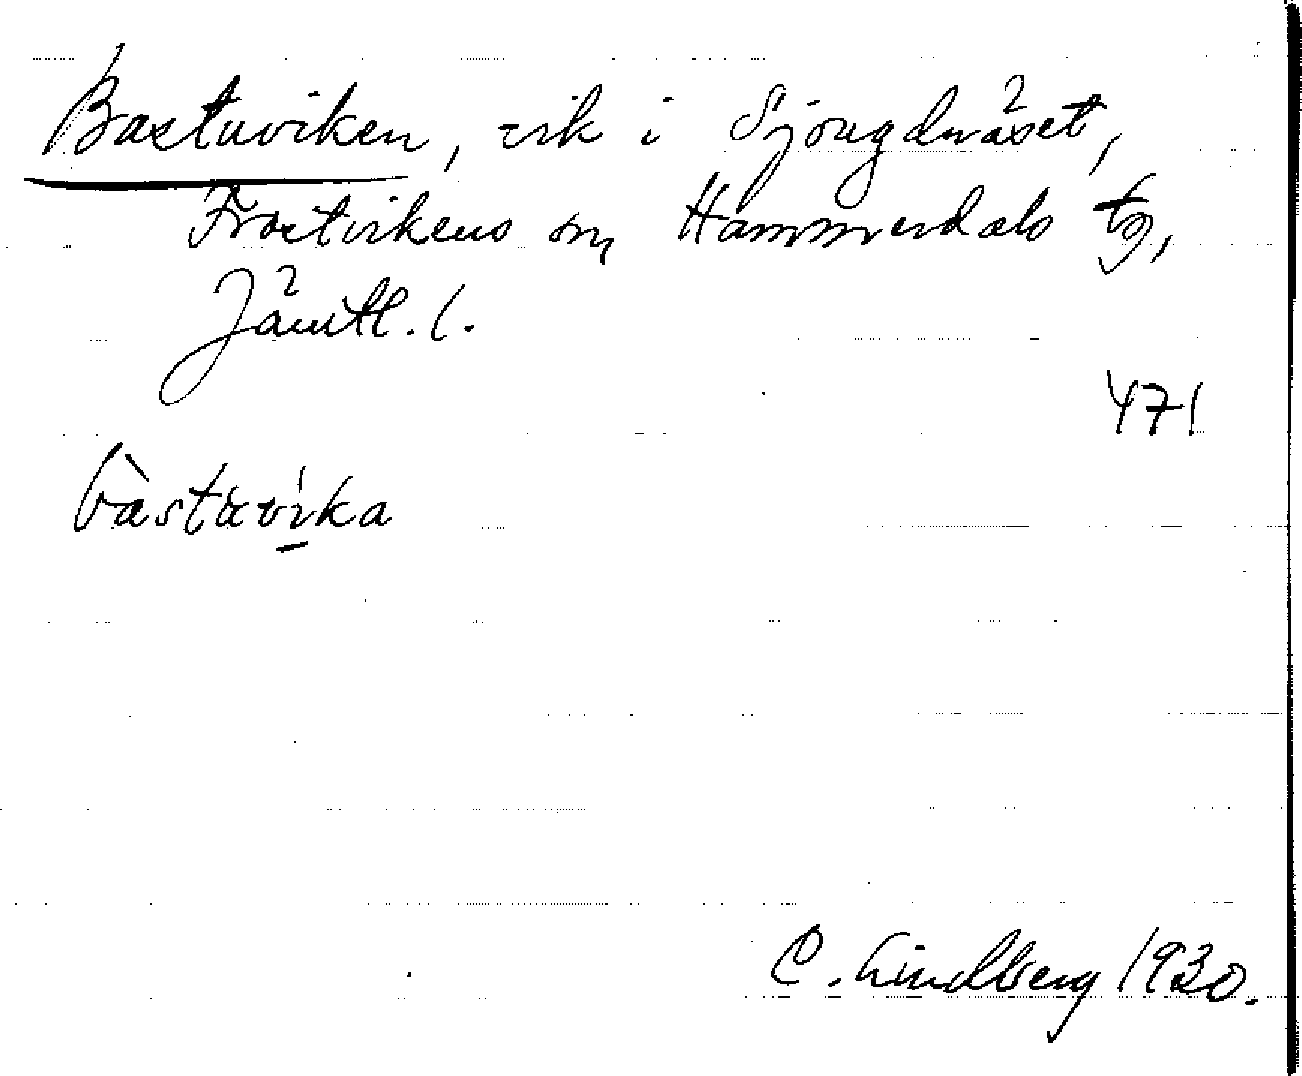 Bastuviken, vik i Sjougdnäset,
Frostvikens sn, Hammerdals tg,
Jämtl. l.
471
bàstuvíka
C. Lindberg 1930.